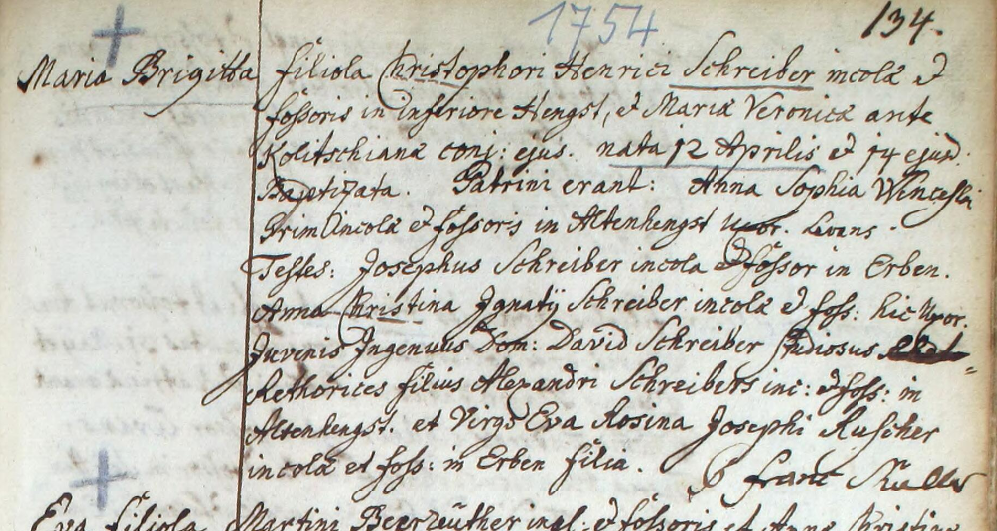 1754
134.
Maria Brigitta filiola Christophori Henrici Schreiber incolæ et
fossoris in inferiore Hengst, et Mariæ Veronicæ ante
Kolitschianæ conj: ejus. nata 12 Aprilis et 14 ejusd.
Baptizata. Patrini erant: Anna Sophia Wenceslai
incolæ et fossoris in Altenhengst uxor. Levans.
Testes: Josephus Schreiber incola et fossor in Erben.
Anna Christina Ignatij Schreiber incolæ et foss: hic Uxor.
Juvenis Ingenuus Dom: David Schreiber Studiosus
Rethorices filius Alexandri Schreibers inc: et foss: in
Altenhengst. et Virgo Eva Rosina Josephi Ruscher
incolæ et foss: in Erben filia. P Franc
Eva filiola Martini Beerreuther incl: et fossoris et Annæ